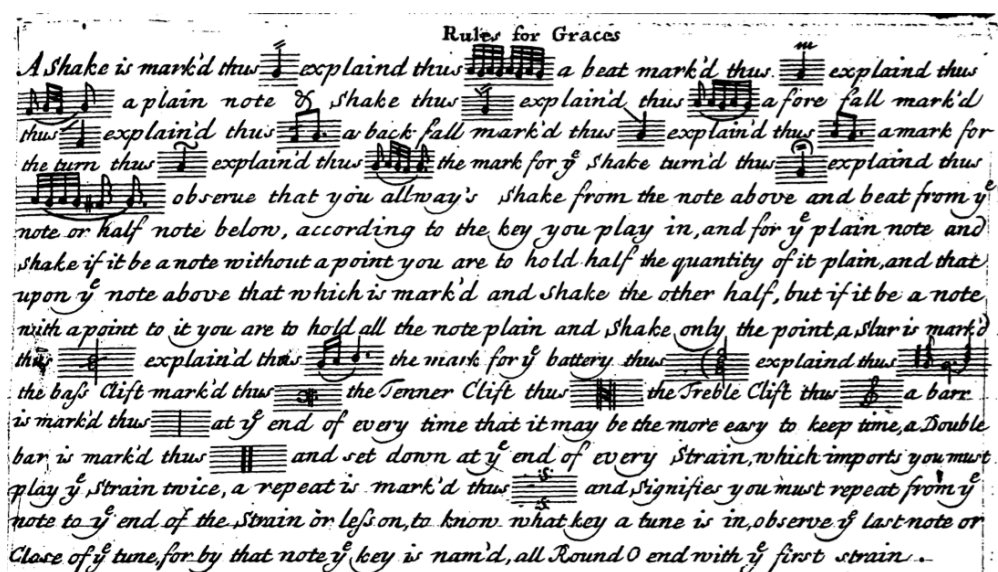 Rules for Graces
A Shake is mark'd thus explaind thus a beat mark'd thus explaind thus
a plain note & Shake thus explain'd thus a fore fall mark'd
thus explain'd thus a back fall mark'd thus explain'd thus a mark for
the turn thus explain'd thus the mark for yᵉ Shake turn'd thus explaind thus
obserue that you allway's Shake from the note above and beat from yᵉ
note or half note below, according to the key you play in, and for yᵉ plain note and
Shake if it be a note without a point you are to hold half the quantity of it plain, and that
upon yᵉ note above that which is mark'd and Shake the other half, but if it be a note
with a point to it you are to hold all the note plain and Shake only the point, a Slur is mark'd
thus explain'd thus the mark for yᵉ battery thus explaind thus
the baſs Clift mark'd thus the Tenner Clift thus the Treble Clift thus a barr
is mark'd thus at yᵉ end of every time that it may be the more easy to keep time, a Double
bar is mark'd thus and set down at yᵉ end of every Strain, which imports you must
play yᵉ Strain twice, a repeat is mark'd thus and Signifies you must repeat from yᵉ
note to yᵉ end of the Strain or leſson, to know what key a tune is in, observe yᵉ last note or
Close of yᵉ tune, for by that note yᵉ key is nam'd, all Round O end with yᵉ first strain.